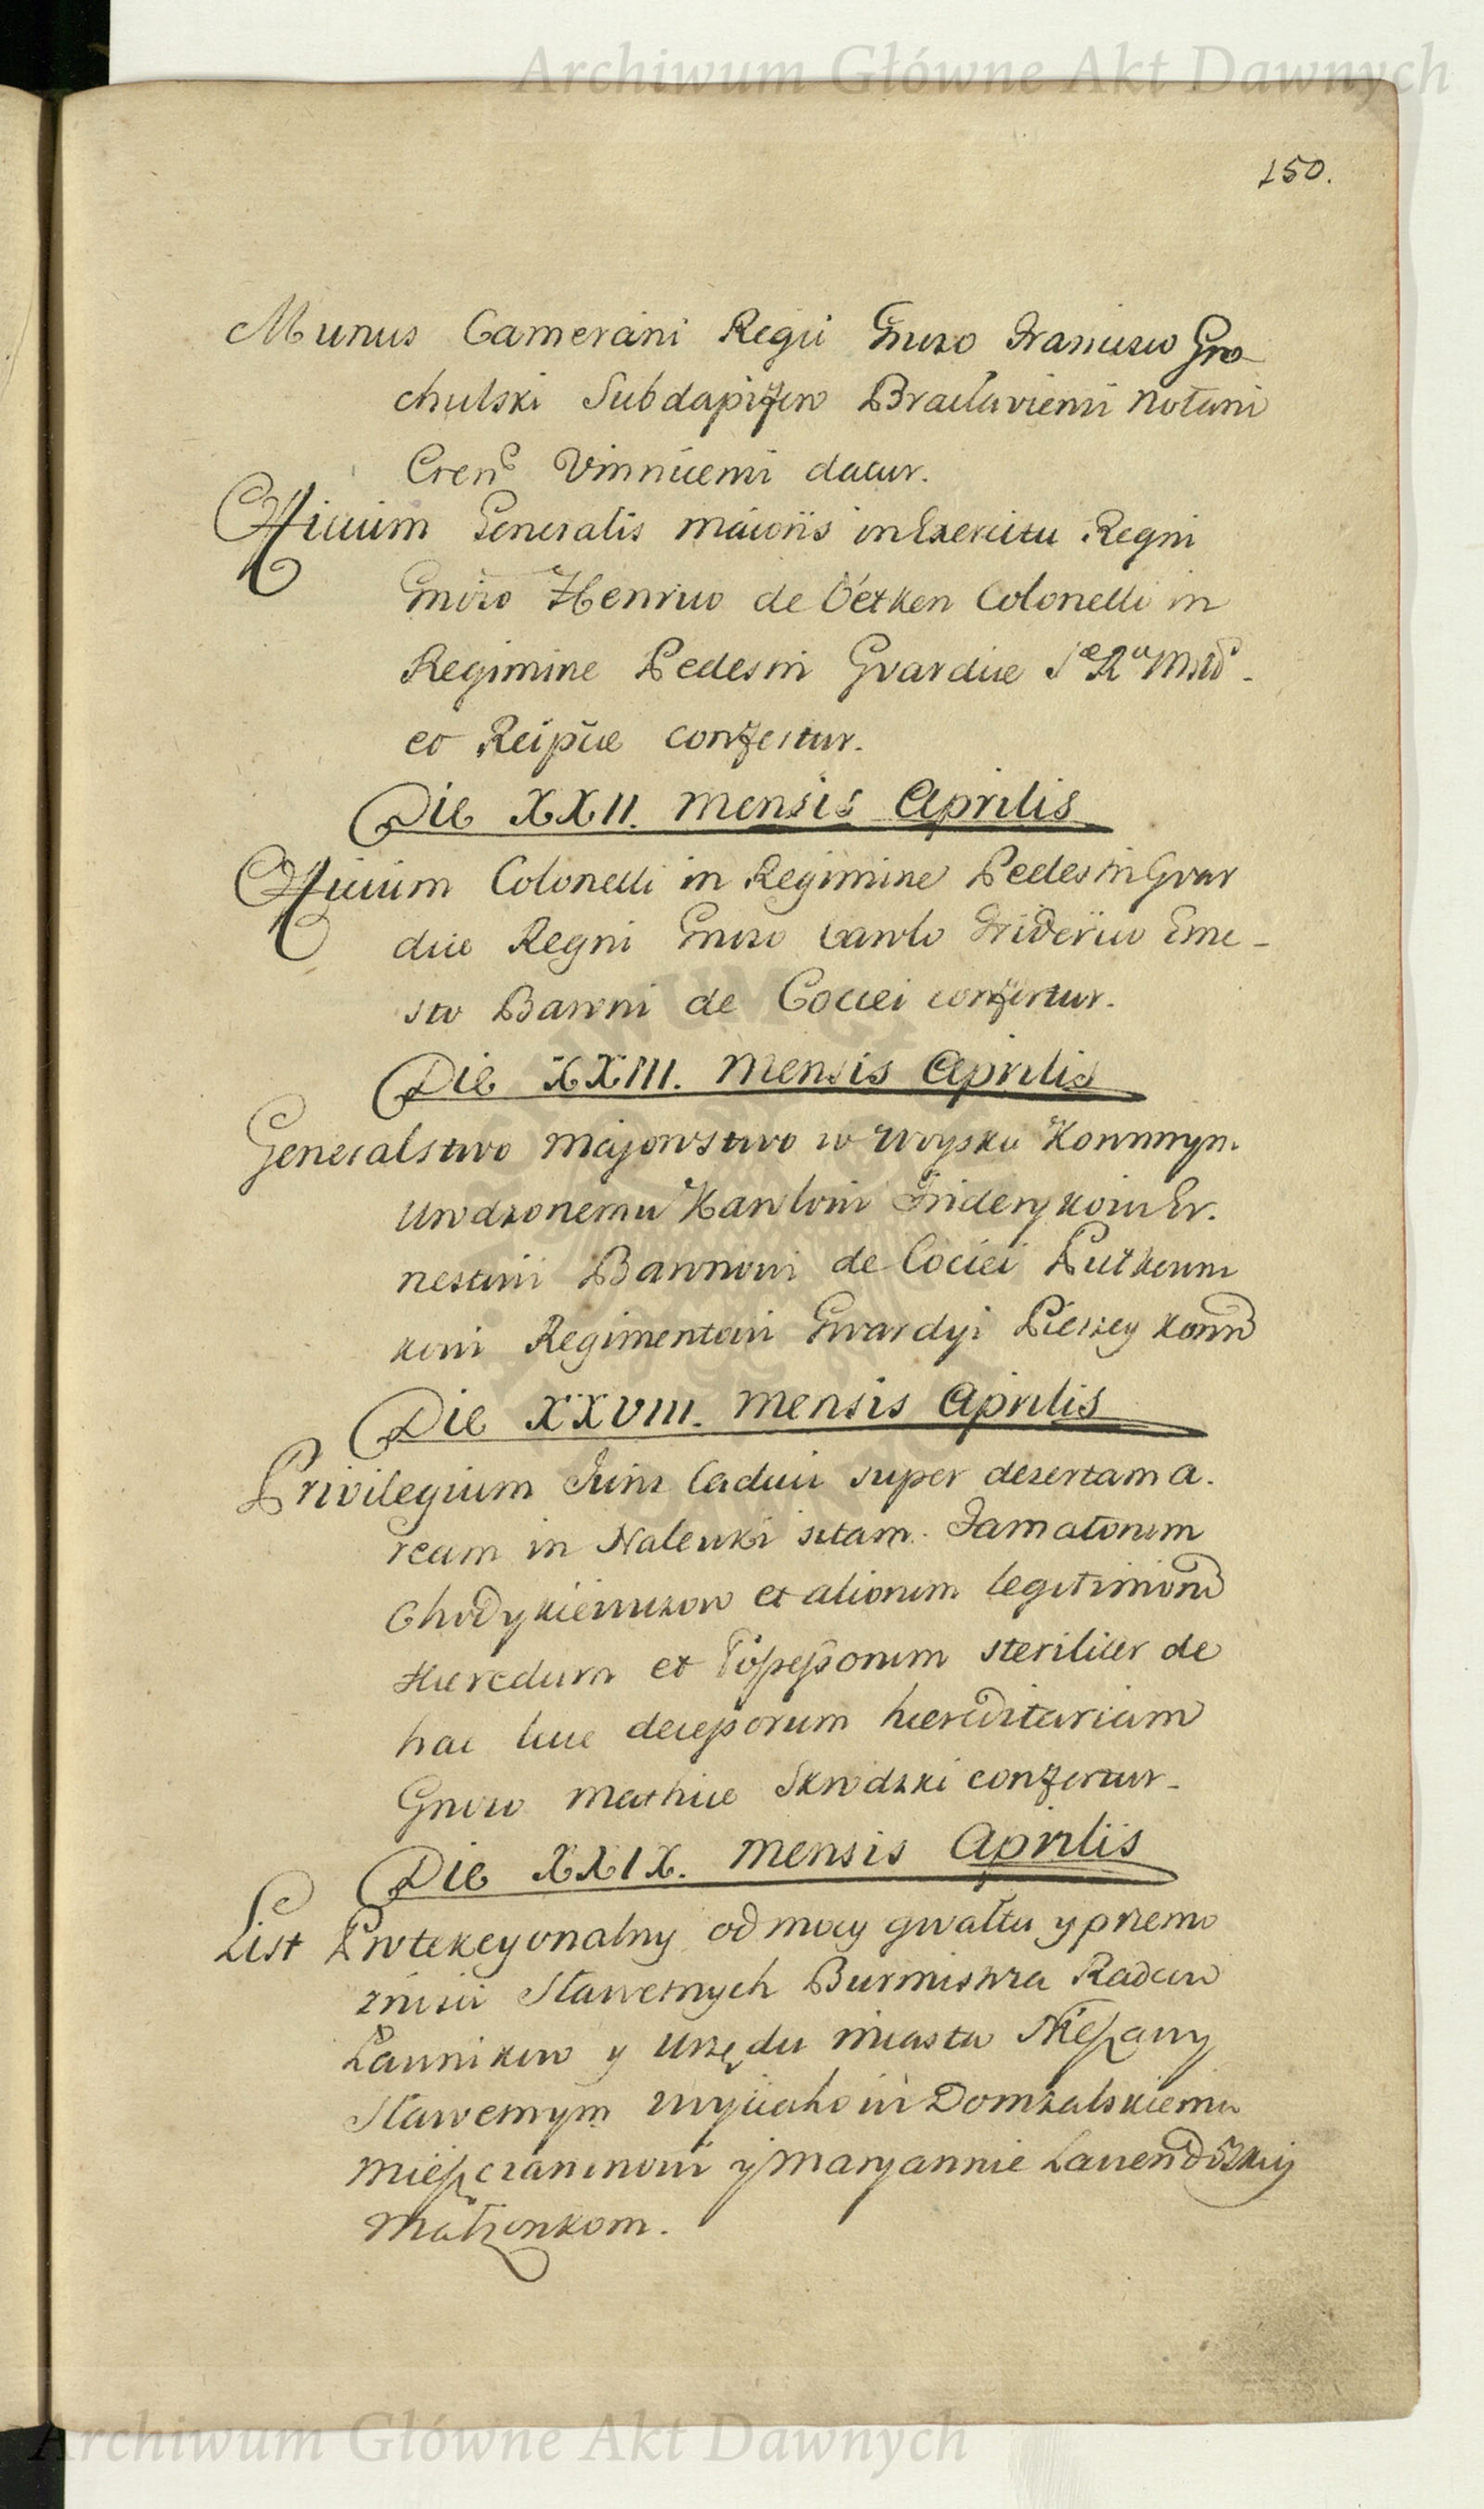 Archiwum Główne Akt Dawnych
150.
Munus Camerarii Regii Gnroso Francisco Gro
chulski Subdapifero Braclaviensi Notario
Cren: Vinnicensi datur.
Officium Generalis maioris in Exercitu Regni
Gnroso Henrico de Oetken Colonello in
Regimine Pedestri Gvardiæ Sæ Ræ Mttis
et Reipcæ confertur.
Die XXII. Mensis Aprilis
Officium Colonelli in Regimine Pedestri Gvar
diæ Regni Gnroso Carolo Friderico Erne-
sto Baroni de Coccei confertur.
Die XXIII. Mensis Aprilis
Generalstwo Majorstwo w Woysku Koronnym
Urodzonemu Karolowi Friderykowi Er.
nestowi Baronowi de Coccei Pułkowni
kowi Regimentowi Gwardyi Pieszey Koron
Die XXVIII. Mensis Aprilis
Privilegium Juris Caduci super desertam a.
ream in Nalewki sitam. Famatorum
Chodykiewiczow et aliorum legitimorum
Hæredum et Possessorum steriliter de
hac luce decessorum hæreditariam
Gnroso Mathiæ Skrodzki confertur.
Die XXIX. Mensis Aprilis
List Protekcyonalny od mocy gwałtu y przemo
żnosci Sławetnych Burmistrza Radców
Ławnikow y Urzędu miasta Nieszawy
Sławetnym Woyciechowi Domżalskiemu
Mieszczaninowi y Maryannie
Małżonkom.
Archiwum Główne Akt Dawnych